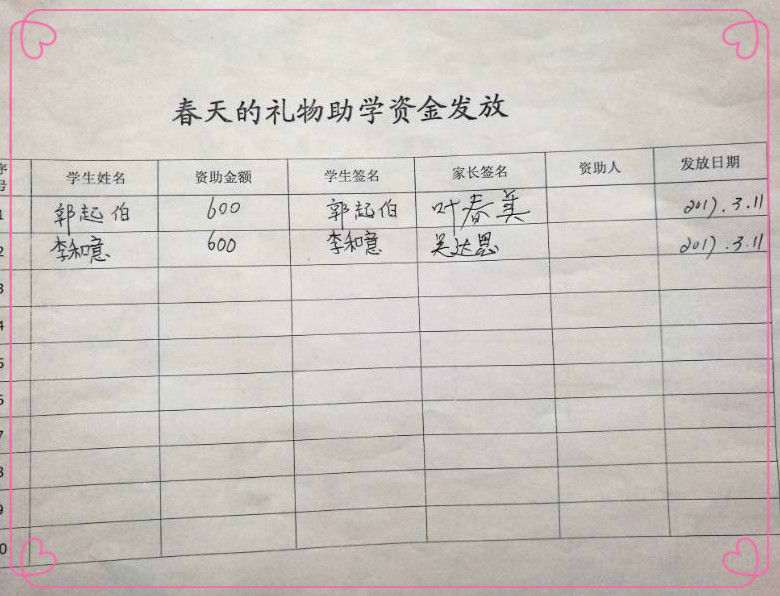 春天的礼物助学资金发放
序号 学生姓名 资助金额 学生签名 家长签名 资助人 发放日期
1 郭起伯 600 郭起伯 叶春美 2017.3.11
2 李和意 600 李和意 吴达恩 2017.3.11
3
4
5
6
7
8
9
10